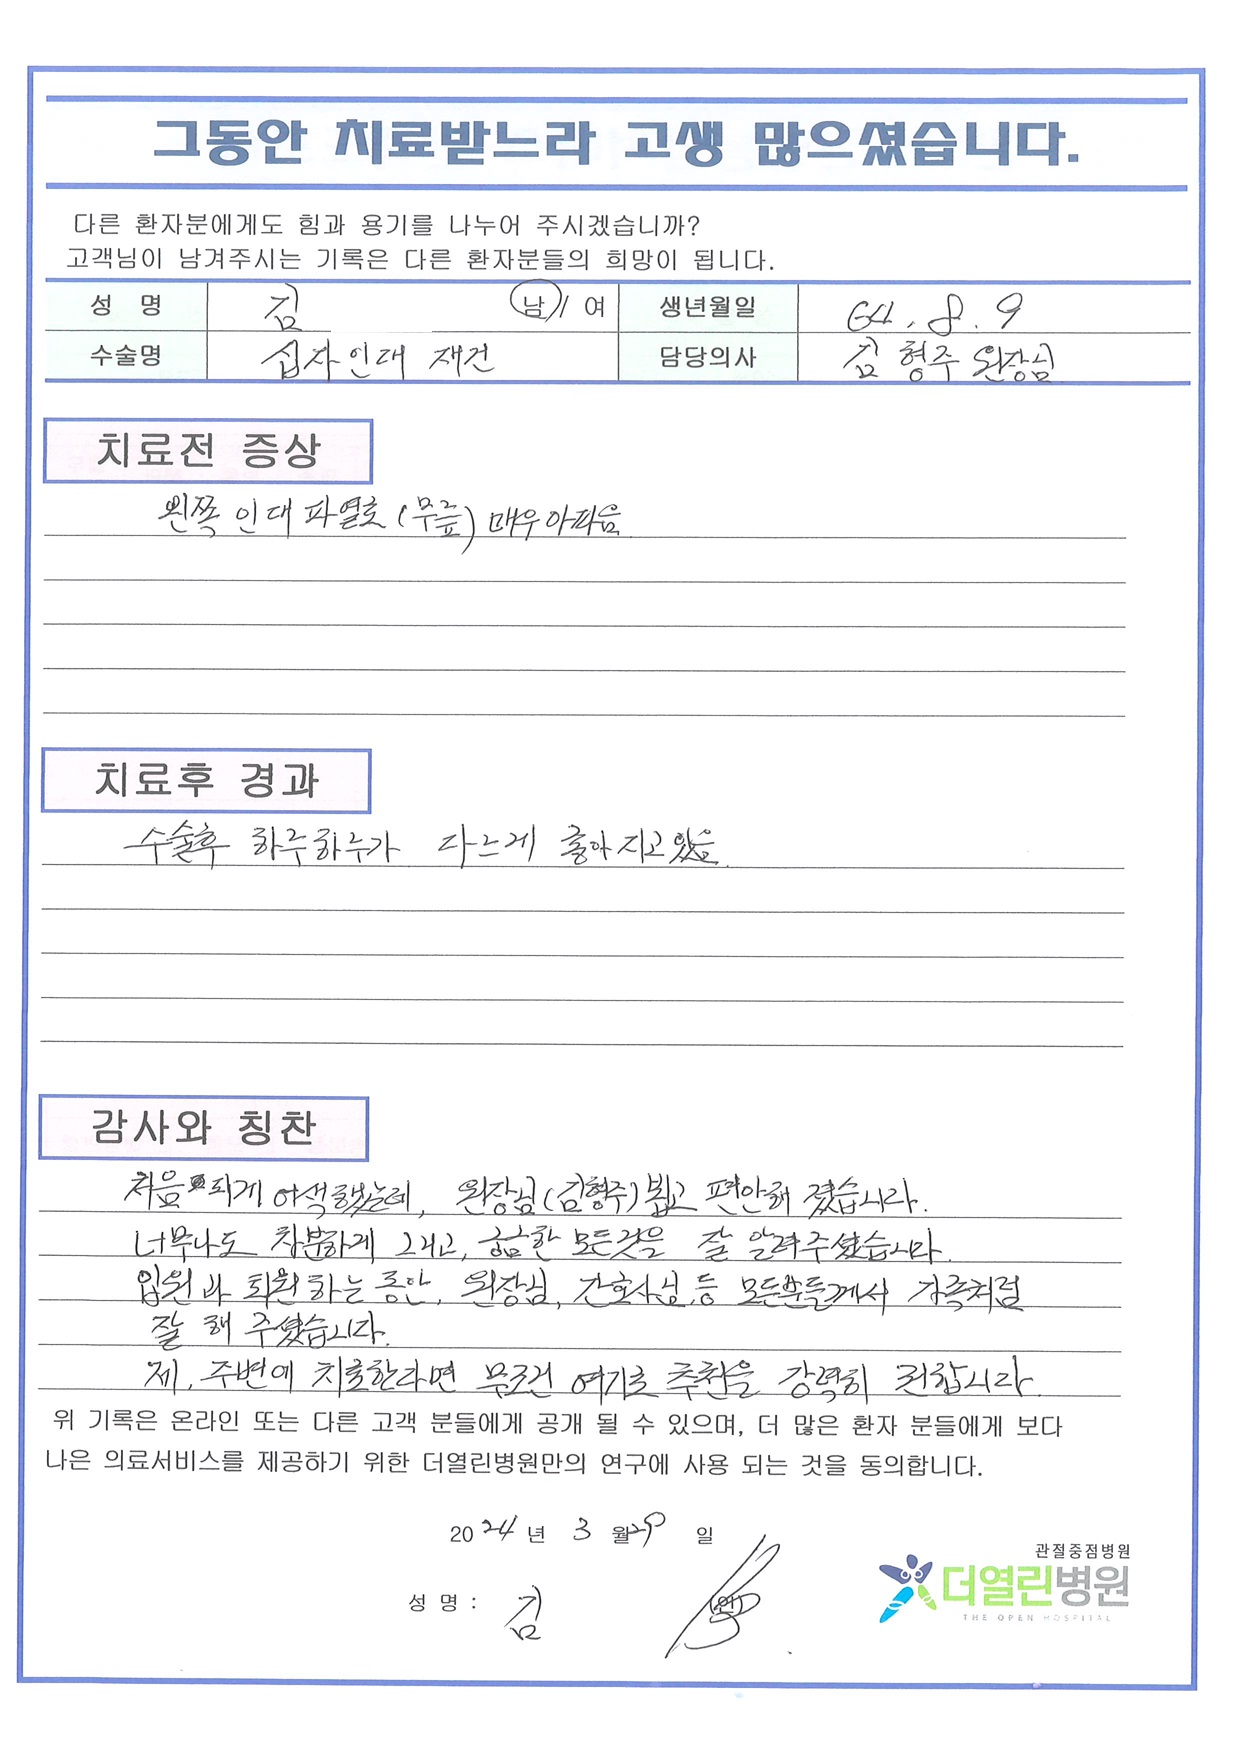 그동안 치료받느라 고생 많으셨습니다.
다른 환자분에게도 힘과 용기를 나누어 주시겠습니까?
고객님이 남겨주시는 기록은 다른 환자분들의 희망이 됩니다.
성 명 김 남 / 여 생년월일 64. 8. 9
수술명 십자인대 재건 담당의사 김형주 원장님
치료전 증상
왼쪽 인대 파열로 (무릎) 매우 아파음
치료후 경과
수술후 하루하루가 다르게 좋아지고 있음.
감사와 칭찬
처음 되게 어색했는데, 원장님(김형주) 뵙고 편안해 졌습니다.
너무나도 차분하게 그리고, 궁금한 모든것을 잘 알려주셨습니다.
입원과 퇴원하는 동안, 원장님, 간호사님, 등 모든분들께서 가족처럼
잘 해 주셨습니다.
제, 주변에 치료한다면 무조건 여기로 추천을 강력히 권합니다.
위 기록은 온라인 또는 다른 고객 분들에게 공개 될 수 있으며, 더 많은 환자 분들에게 보다
나은 의료서비스를 제공하기 위한 더열린병원만의 연구에 사용 되는 것을 동의합니다.
2024 년 3 월 29 일
관절중점병원
더열린병원
THE OPEN HOSPITAL
성 명 : 김 (인)